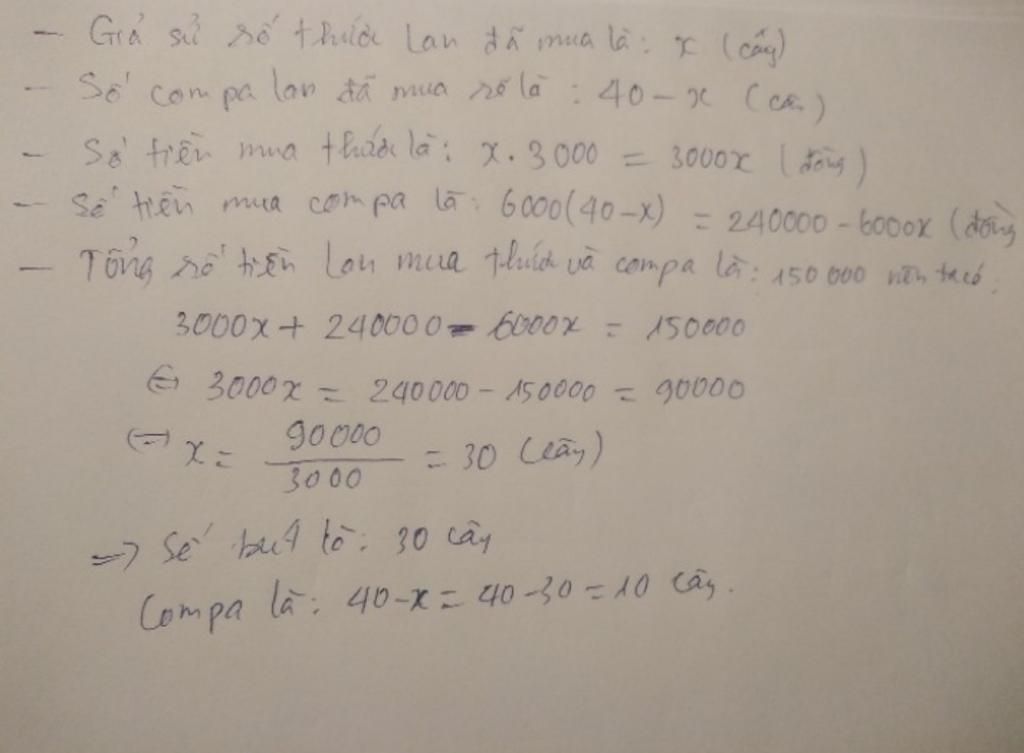 - Giả sử số thước Lan đã mua là: x (cây)
- Số compa lan đã mua sẽ là : 40 - x (cây)
- Số tiền mua thước là: x . 3000 = 3000x (đồng)
- Số tiền mua compa là: 6000(40-x) = 240000 - 6000x (đồng
- Tổng số tiền Lan mua thước và compa là: 150 000 nên ta có:
3000x + 240000 - 6000x = 150000
⇔ 3000x = 240000 - 150000 = 90000
⇔ x = 90000 / 3000 = 30 (cây)
=> Số bút là: 30 cây
Compa là: 40-x = 40-30 = 10 cây.